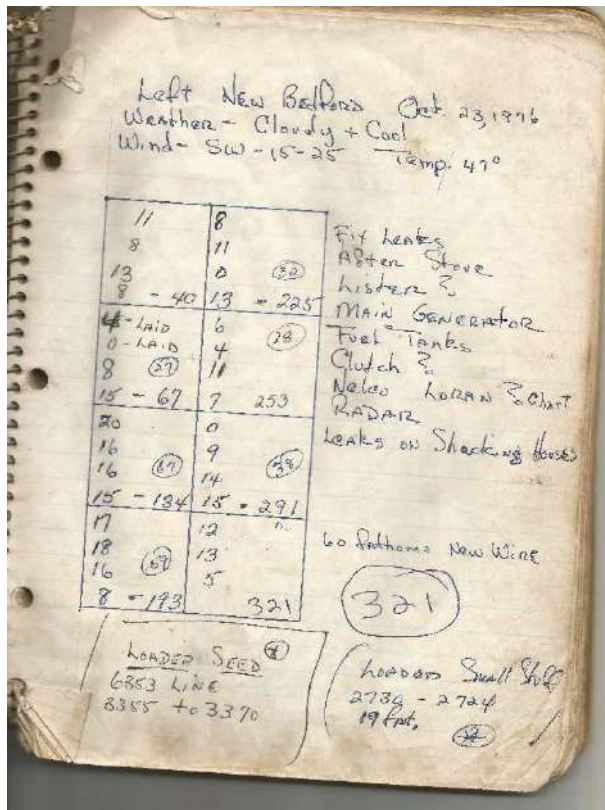 Left New Bedford Oct. 23, 1976
Weather - Cloudy + Cool
Wind - SW - 15-25 Temp. 47°
11 8
8 11
13 0 32
8 - 40 13 - 225
4 - LAID 6
0 - LAID 4 28
8 27 11
15 - 67 7 253
20 0
16 9
16 67 14 38
15 - 134 15 - 291
17 12
18 13
16 59 5
8 - 193 321
Fix Leaks
After Stove
Lister ?
MAIN GENERATOR
Fuel Tanks
Clutch ?
Nelco LORAN ? Chart
RADAR
Leaks on Shucking Houses
60 Fathoms New Wire
321
LOADED SEED
6353 LINE
3355 to 3370
LOADED Small Stuff
2730 - 2724
19 fat.